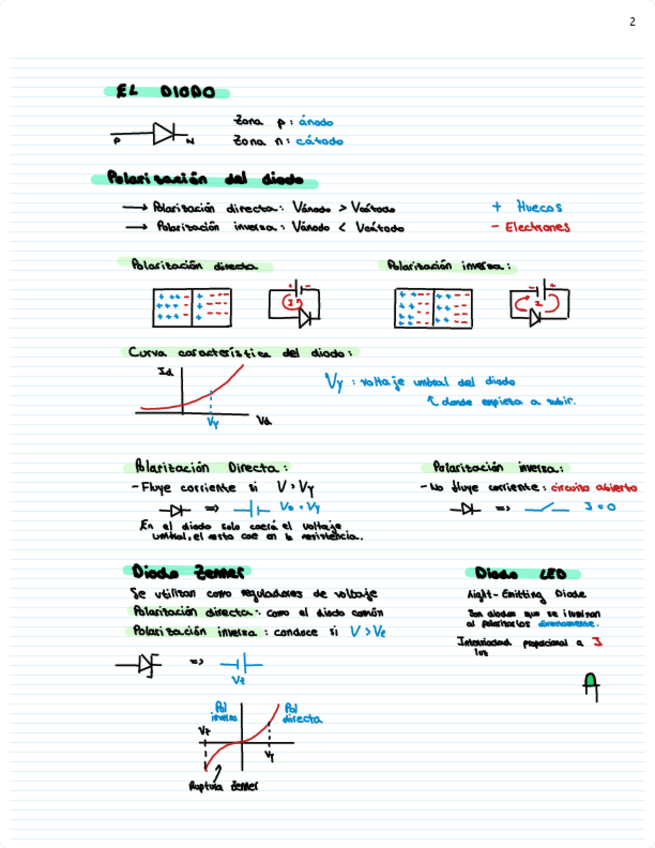 2
EL DIODO
P N
Zona p: ánodo
Zona n: cátodo
Polarización del diodo
→ Polarización directa: Vánodo > Vcátodo
→ Polarización inversa: Vánodo < Vcátodo
+ Huecos
- Electrones
Polarización directa
Polarización inversa:
Curva característica del diodo:
Id
Vγ
Vd
Vγ: voltaje umbral del diodo
donde empieza a subir.
Polarización Directa:
- Fluye corriente si V > Vγ
=> Vo = Vγ
En el diodo solo caerá el voltaje
umbral, el resto cae en la resistencia.
Polarización inversa:
- No fluye corriente: circuito abierto
=> I = 0
Diodo Zenner
Se utilizan como reguladores de voltaje
Polarización directa: como el diodo común
Polarización inversa: conduce si V > Vz
=> Vz
Pol inversa
Pol directa
Vz
Vγ
Ruptura Zenner
Diodo LED
Light-Emitting Diode
Son diodos que se iluminan
al polarizarlos directamente.
Intensidad proporcional a I
luz